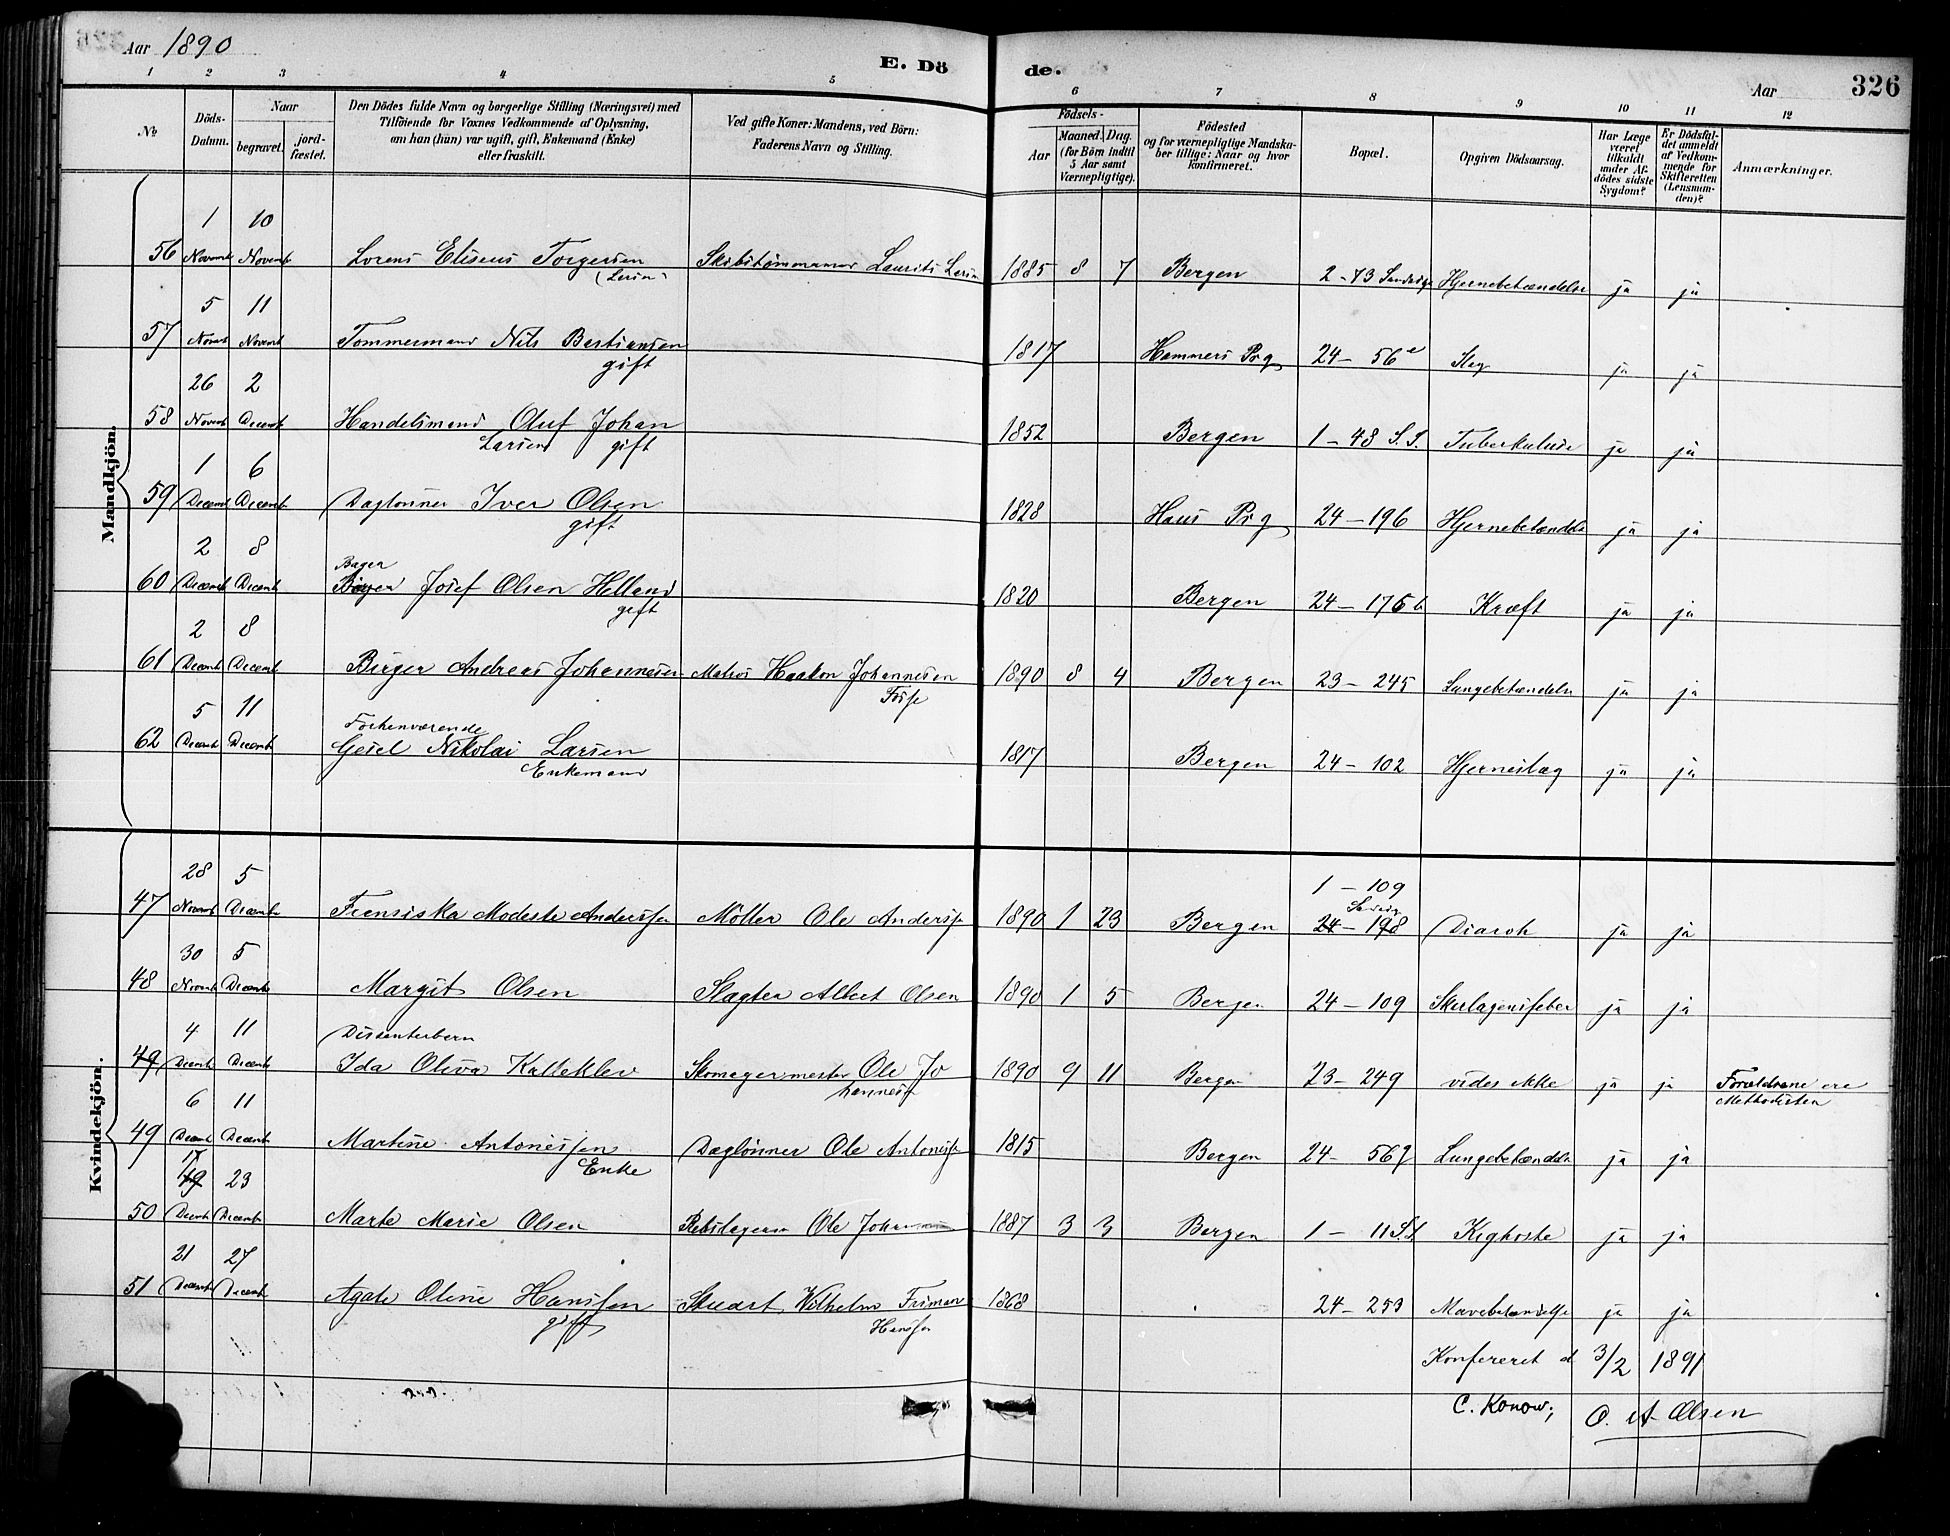 Aar 1890
E. Dö de.
Aar 326
1 2 3 4 5 6 7 8 9 10 11 12
No
Döds-Datum.
Naar
begravet.
jord-fæstet.
Den Dödes fulde Navn og borgerlige Stilling (Næringsvei) med
Tilföiende for Voxnes Vedkommende af Oplysning,
om han (hun) var ugift, gift, Enkemand (Enke)
eller fraskilt.
Ved gifte Koner: Mandens, ved Börn:
Faderens Navn og Stilling.
Födsels-
Aar
Maaned. Dag.
(for Börn indtil
5 Aar samt
Værnepligtige).
Födested
og for værnepligtige Mandska-
ber tillige: Naar og hvor
konfirmeret.
Bopæl.
Opgiven Dödsaarsag.
Har Læge
været
tilkaldt
under Af-
dödes sidste
Sygdom?
Er Dödsfal-
det anmeldt
af Vedkom-
mende for
Skifteretten
(Lensman-
den)?
Anmærkninger.
Mandkjön.
1 10
56 Novemb Novemb Lorens Eliseus Torgersen Skibstømmermand Laurits 1885 8 7 Bergen 2-73 Sandvig Hjernebetændelse ja ja
5 11
57 Novemb Novemb Tømmermand Nils Bastiansen 1817 Hammers Prg 24-56 Slag ja ja
gift
26 2
58 Novemb Decemb Handelsmand Oluf Johan 1852 Bergen 1-48 S.S. Tuberkulose ja ja
Larsen gift
1 6
59 Decemb Decemb Daglønner Iver Olsen 1828 Haus Prg 24-196 Hjernebetændelse ja ja
gift
2 8
Bager
60 Decemb Decemb Josef Olsen Helland 1820 Bergen 24-175b Kræft ja ja
gift
2 8
61 Decemb Decemb Birger Andreas Johannesen Matros Haakon Johannesen 1890 8 4 Bergen 23-245 Lungebetændelse ja ja
Fosse
5 11
Forhenværende
62 Decemb Decemb Gesel Nikolai Larsen 1817 Bergen 24-102 Hjerneslag ja ja
Enkemand
Kvindekjön.
28 5 1-109
47 Novemb Decemb Fransiska Modeste Anderssen Møller Ole Anderss 1890 1 23 Bergen 24-198 Diaroh ja ja
30 5
48 Novemb Decemb Margit Olsen Slagter Albert Olsen 1890 1 5 Bergen 24-109 Skarlagensfeber ja ja
4 11 Dissenterbarn
49 Decemb Decemb Ida Oliva Kalleklev Skomagermester Ole Jo 1890 9 11 Bergen 23-249 vides ikke ja ja Forældrene ere
hanness Methodister
6 11
49 Decemb Decemb Martine Antonissen Daglønner Ole Antoniss 1815 Bergen 24-567 Lungebetændelse ja ja
Enke
17
19 23
50 Decemb Decemb Marte Marie Olsen Rebslager Ole Johannes 1887 3 3 Bergen 1-11 S.S. Kighoste ja ja
21 27
51 Decemb Decemb Agate Oline Hanssen Stuert Vilhelm Friman 1868 24-253 Mavebetændelse ja ja
gift Hanssen
Konfereret d 3/2 1891
C. Konow; O. A Olsen